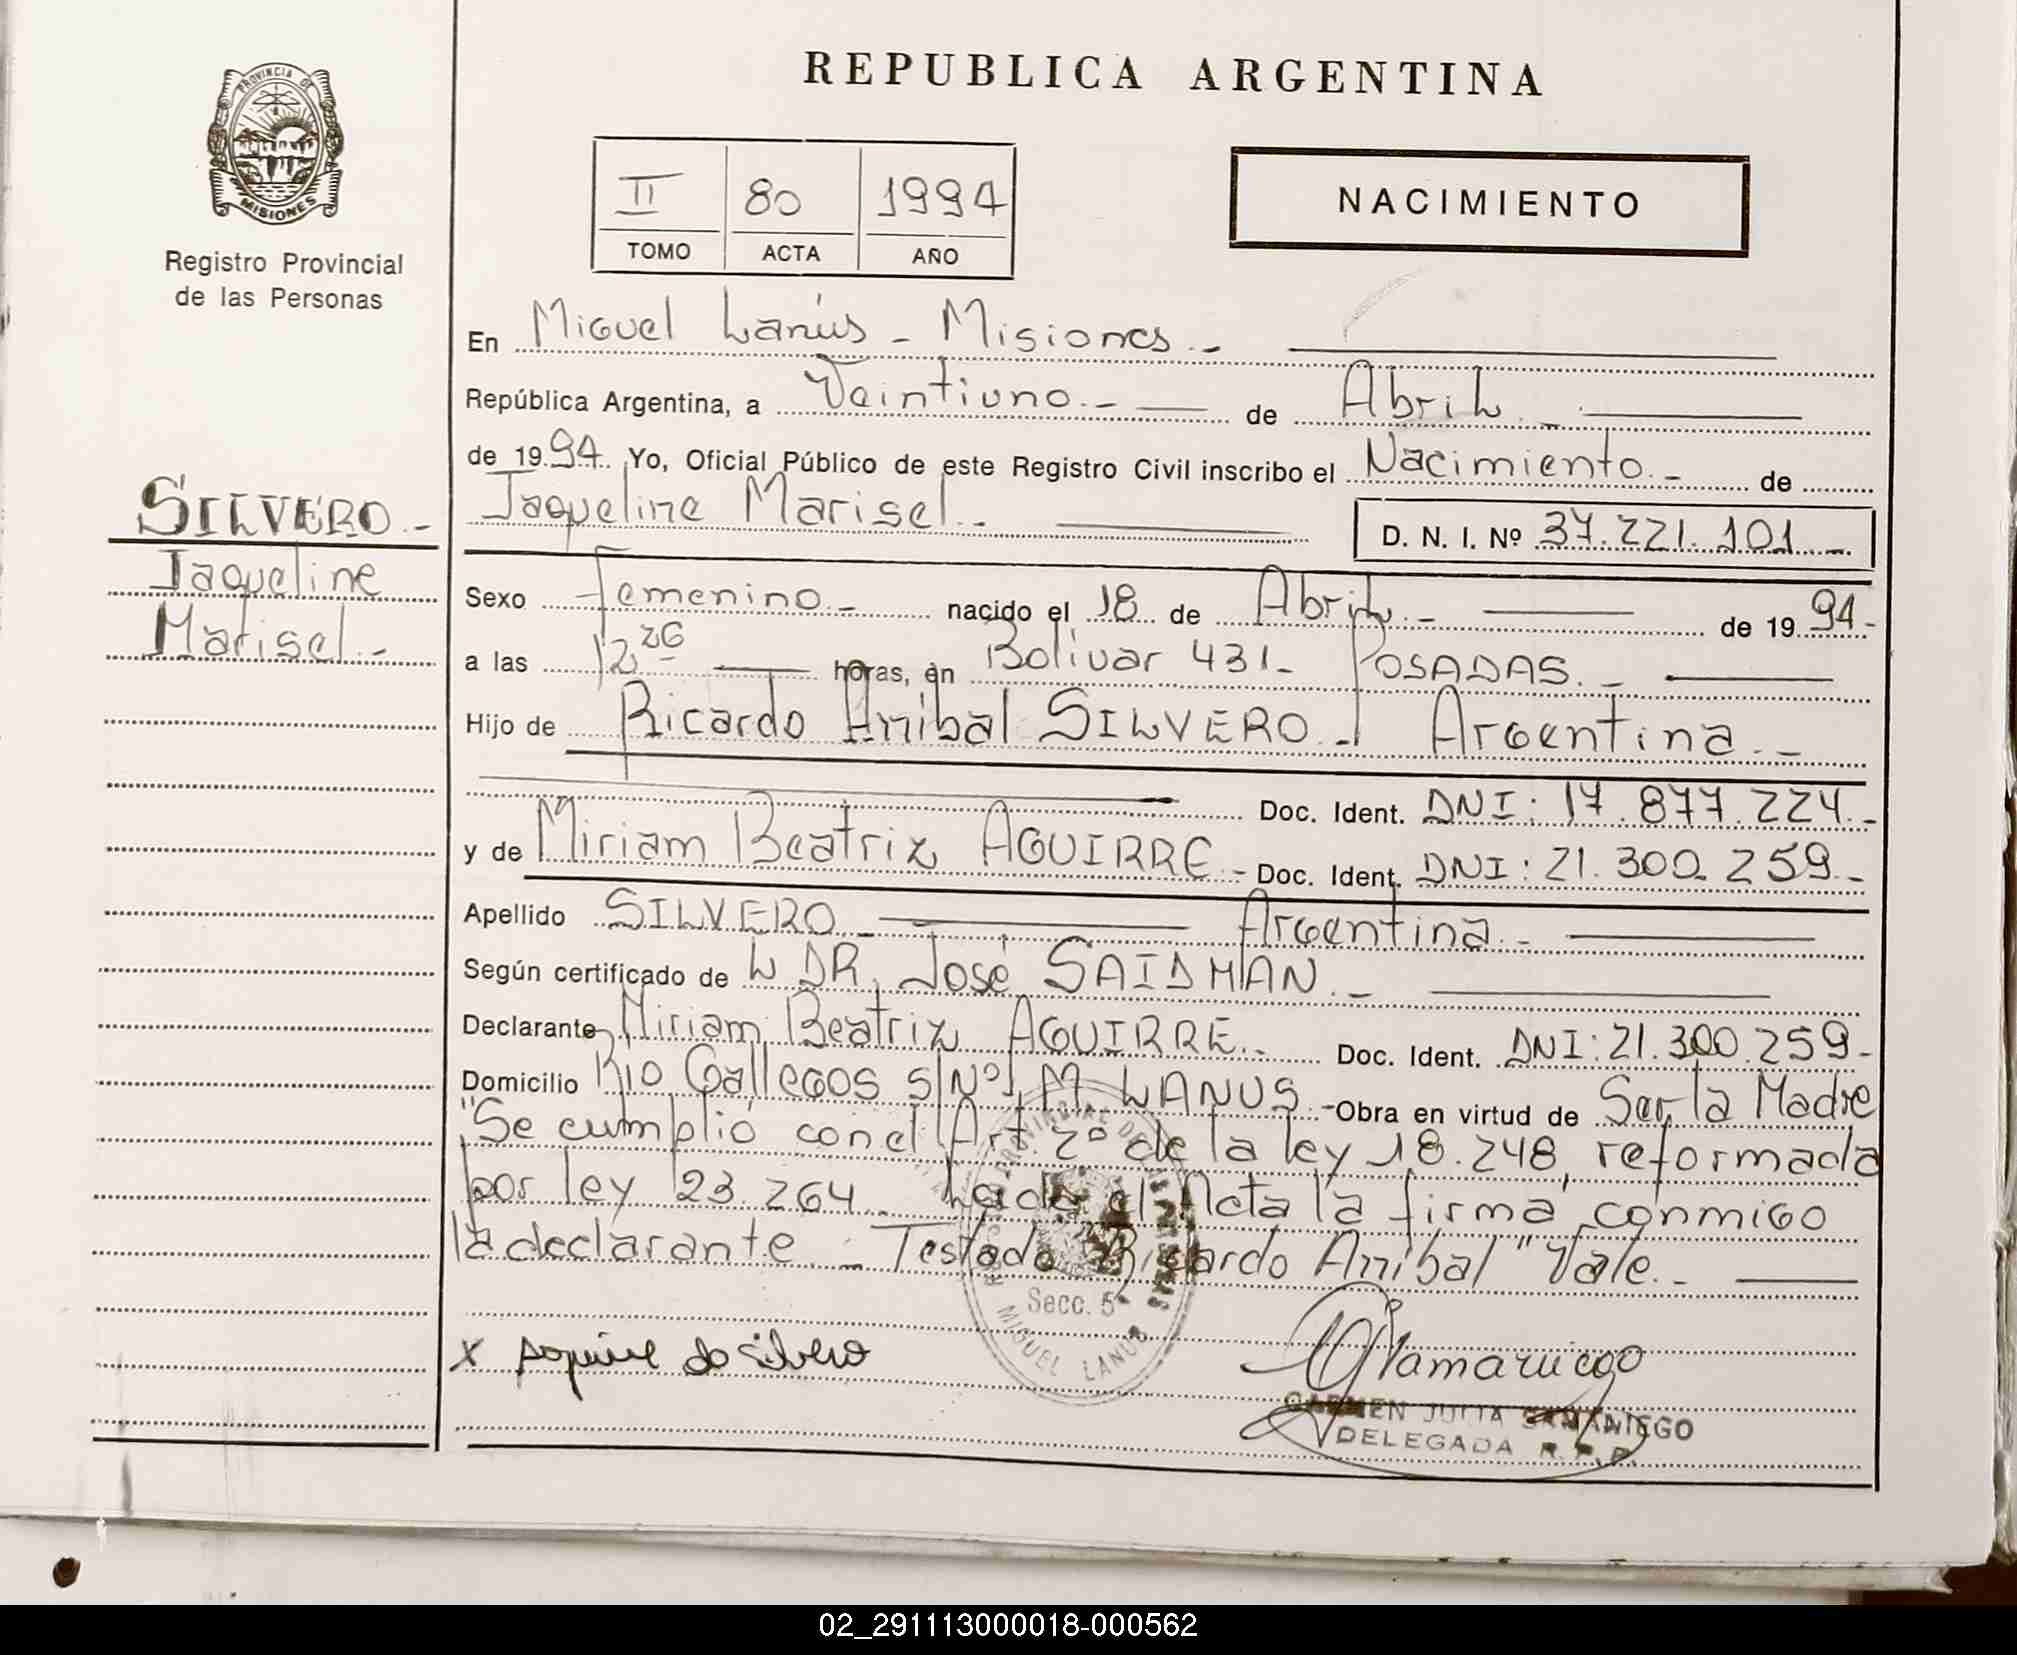 REPUBLICA ARGENTINA
PROVINCIA DE
MISIONES
Registro Provincial
de las Personas
II 80 1994
TOMO ACTA AÑO
NACIMIENTO
SILVERO.-
Jaqueline
Marisel.-
En Miguel Lanús - Misiones.-
República Argentina, a Veintiuno.- de Abril.-
de 1994. Yo, Oficial Público de este Registro Civil inscribo el Nacimiento.- de
Jaqueline Marisel.-
D. N. I. Nº 37.221.101.-
Sexo Femenino.- nacido el 18 de Abril.- de 1994.-
a las 12 26 horas, en Bolívar 431- POSADAS.-
Hijo de Ricardo Aníbal SILVERO.- Argentina.-
Doc. Ident. DNI: 17.877.224.-
y de Miriam Beatriz AGUIRRE.- Doc. Ident. DNI: 21.300.259.-
Apellido SILVERO.- Argentina.-
Según certificado de L DR. José SAIDMAN.-
Declarante Miriam Beatriz AGUIRRE.- Doc. Ident. DNI: 21.300.259-
Domicilio Rio Gallegos S/Nº, M LANUS.- Obra en virtud de Ser la Madre
"Se cumplió con el Art. 2º de la ley 18.248, reformada
por ley 23.264. Leida el Acta la firma conmigo
la declarante.- Testado "Ricardo Aníbal" Vale.-
Secc. 5ª
MIGUEL LANUS
x Aguirre de silvero
CARMEN JULIA SAMANIEGO
DELEGADA R. P. P.
02_291113000018-000562